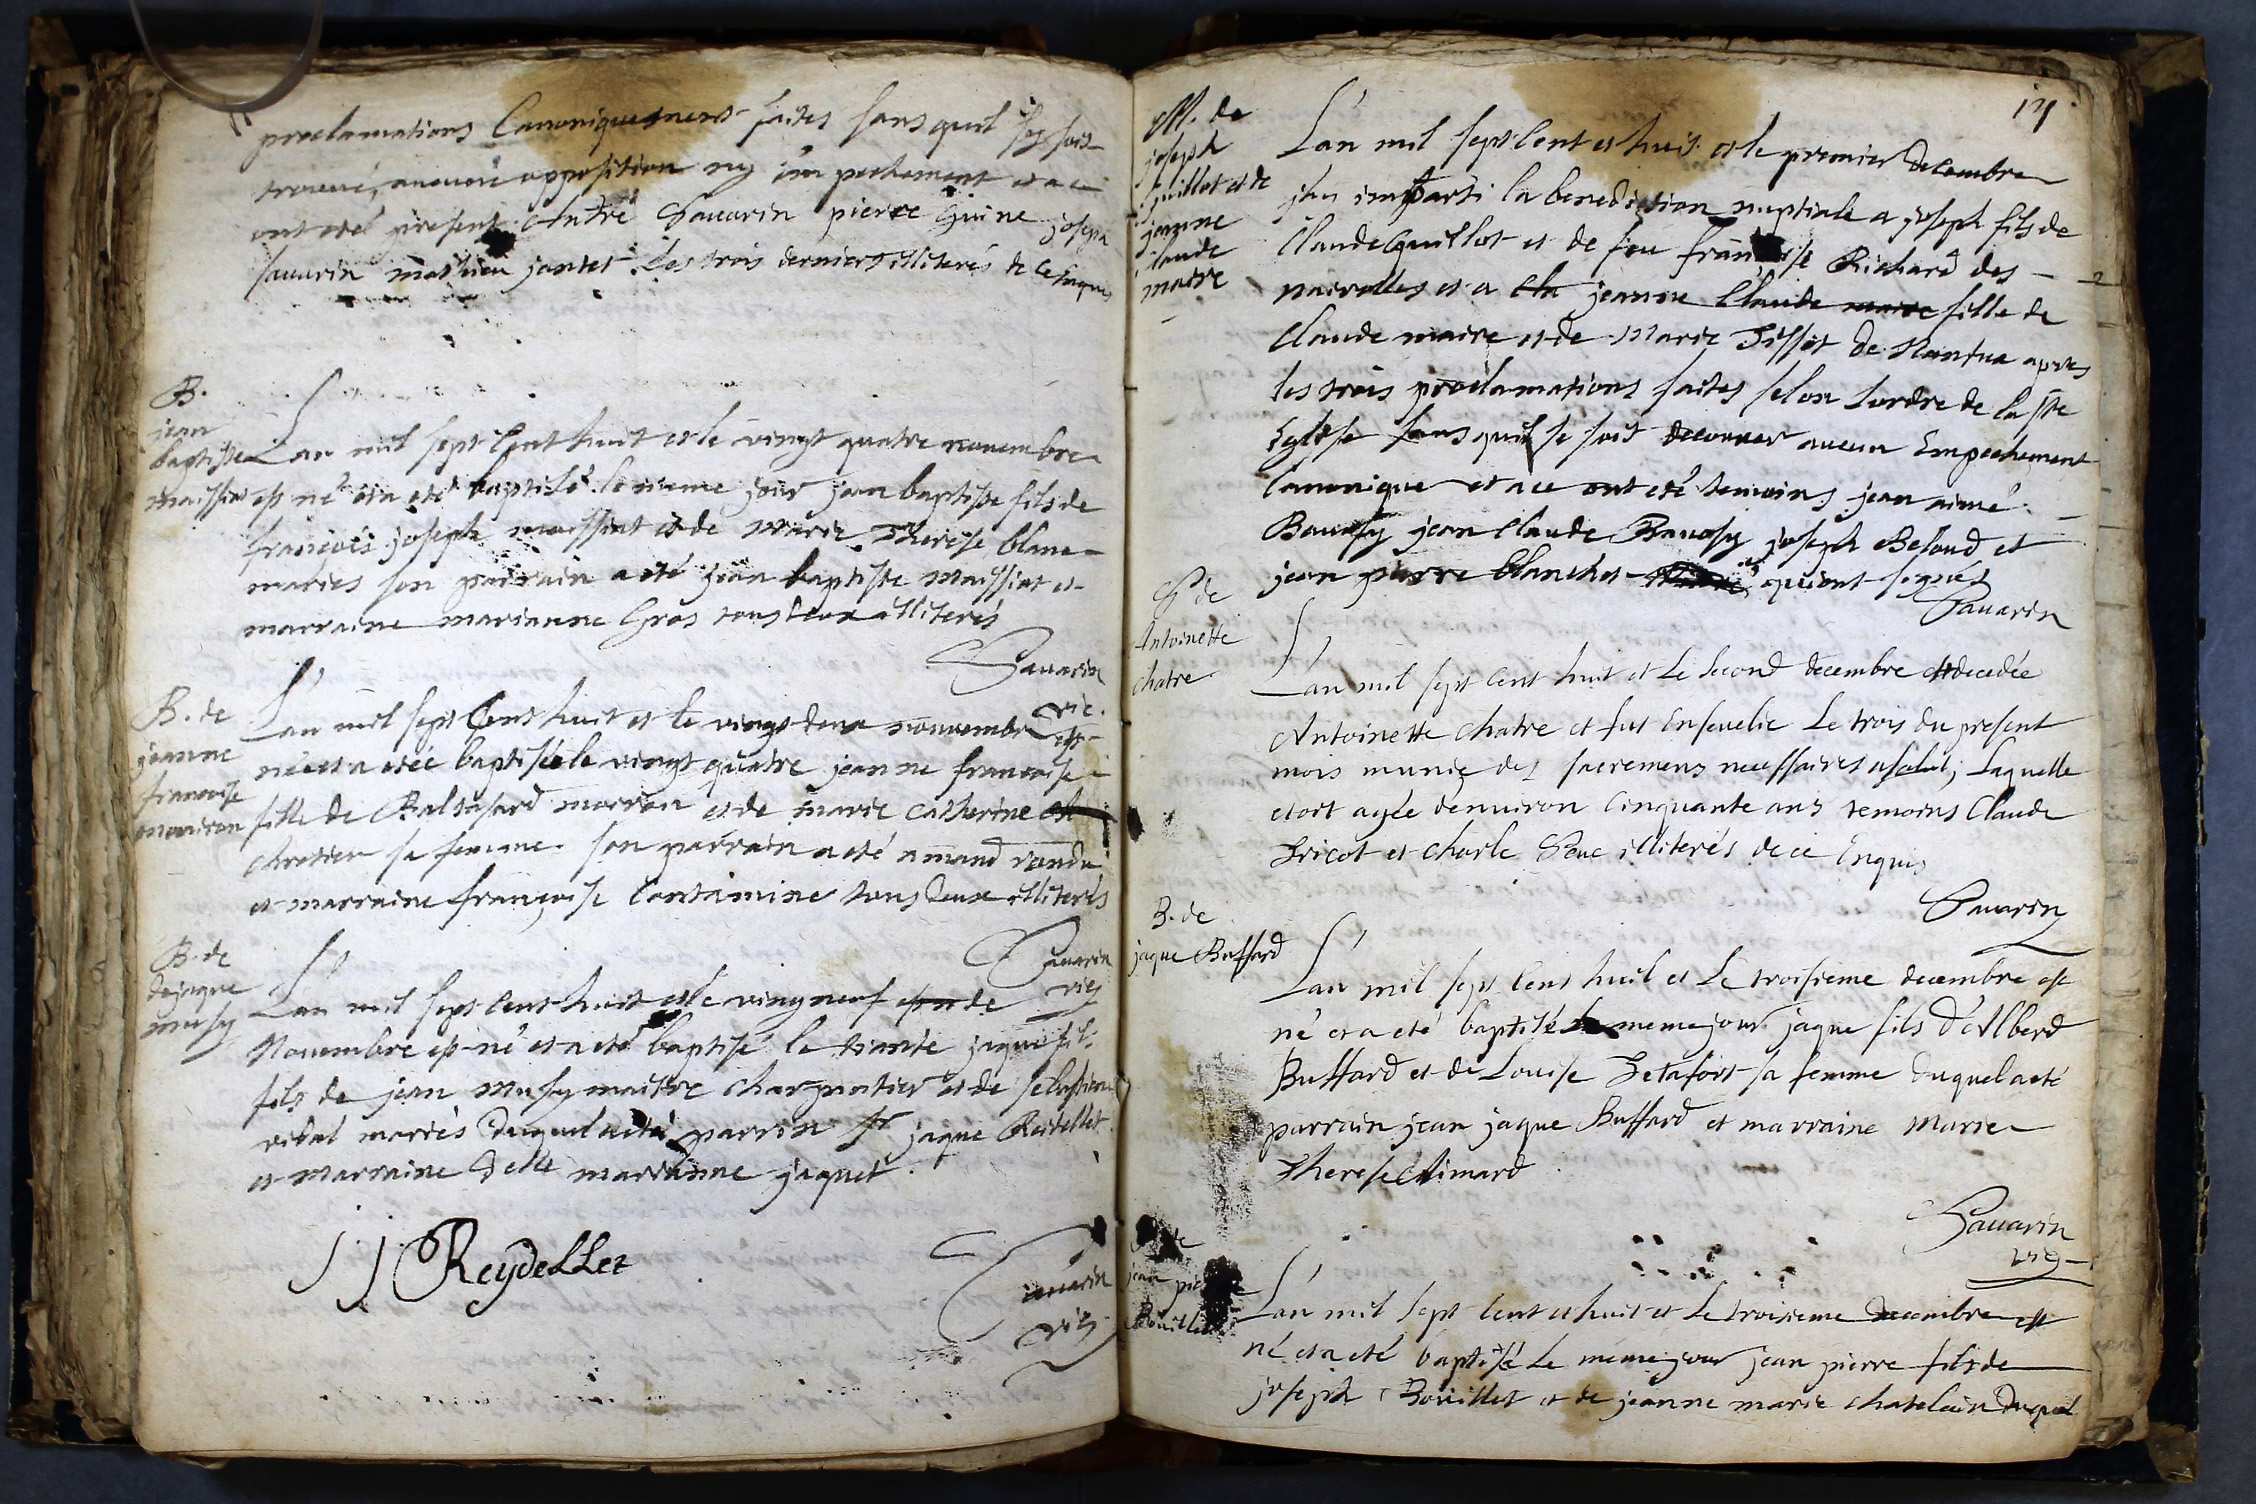 proclamations Canoniquement faites sans quil sy soit
trouvé, aucune opposition ny im pechement et a ce
ont eté present André Sauarin pierre Guine joseph
sauarin mathieu jantet. Les trois derniers illiterés de ce Enquis
B.
jean
baptiste
maissiat
Lan mil sept Cent huit et le vingt quatre nouembre
est né et a eté baptisé le meme jour jean baptiste fils de
francois joseph maissiat et de marie Therese blanc
mariés son parrain a eté jean baptiste Maissiat et
marraine marianne Gros tous deux illiterés
Sauarin
vic.
B. de
jeanne
francoise
morron
Lan mil sept Cent huit et le vingt deux nouuembre est
née et a etée baptisée le vingt quatre jeanne francoise
fille de Baltasard morron et de marie catherine
chretien sa femme. son parrain a eté amand randu
et marraine françoise Contamine tous deux illiterés
Sauarin
vic
B. de
de jaque
musy
Lan mil sept Cent huit et le ving neuf de
Nouembre est né et a eté baptisé le trante jaque fil.
fils de jean Musy maistre charpantier et de sebastiene
vidal mariés duquel a eté parrin Sr jaque Reidellet
et Marraine Delle marianne jaquet.
JJ Reydellet
Sauarin
vic
M. de
joseph
guillot et de
jeanne
claude
maire
L'an mil sept Cent et huit et le premier decembre
jay imparti la benediction nuptiale a joseph fils de
Claude Guillot et de feu francoise Richard des
nairolles et a cla jeanne Claude maire fille de
Claude maire et de Marie Tissot de Nantua apres
les trois proclamations faites selon Lordre de la ste
Eglise sans quil se soit decouuer aucun Empechement
Canonique et a ce ont eté temoins jean aimé
Baudsy jean Claude Baudsy joseph Beloud et
jean pierre blanchet qui ont signés
Sauarin
S de
Antoinette
chatre
L'an mil sept Cent huit et Le second decembre est decedée
Antoinette chatre et fut Enseuelie Le trois du present
mois munie des sacremens necessaires a salut; Laquelle
etoit agée denuiron Cinquante ans temoins Claude
Tricot et charle illiterés de ce Enquis
Sauarin
B. de
jaque Buffard
L'an mil sept Cent huit et Le troisieme decembre est
né et a eté baptisé le meme jour jaque fils d'Alberd
Buffard et de Louise Letafort sa femme duquel a eté
parrain jean jaque Buffard et marraine Marie
Therese Aimard
Sauarin
vic
jean pierre
Bouillet
L'an mil sept Cent et huit et Le troisieme decembre est
né et a eté baptisé Le meme jour jean pierre fils de
joseph Bouillet et de jeanne marie chatelain duquel